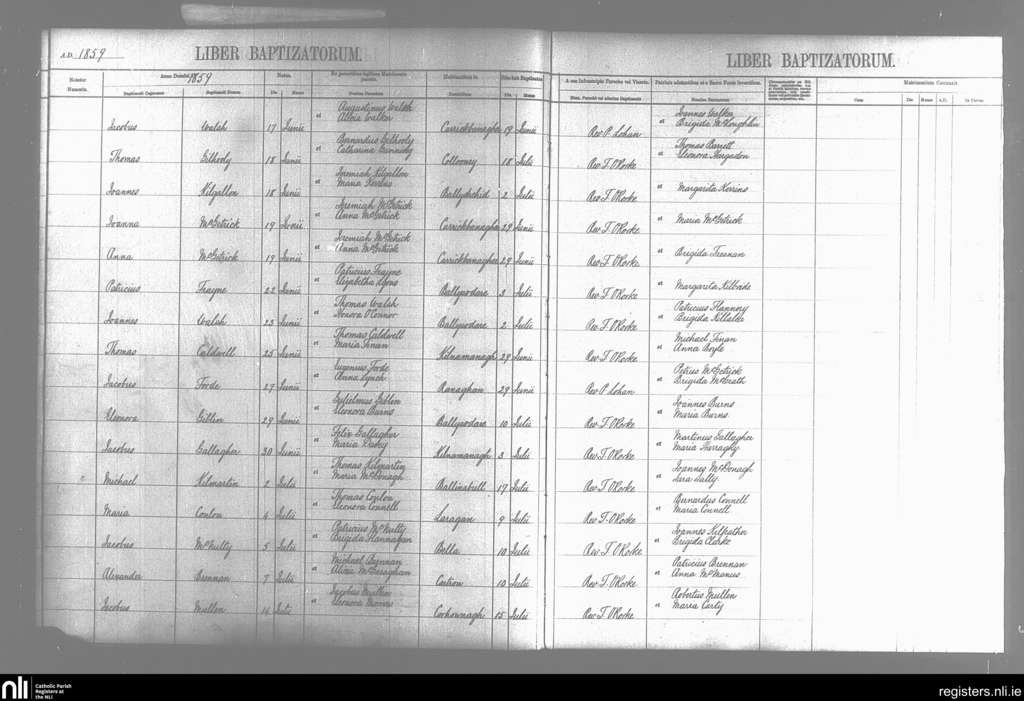 A.D. 1859
LIBER BAPTIZATORUM.
LIBER BAPTIZATORUM.
Anno Domini 1859
Natus.
Die Mense
Die Mense
Matrimonium Contraxit.
Cum Die Mense A.D. In Curia.
Jacobus Walsh 17 Junii Augustinus Walsh et Alicia Walker Carrickbanagher 19 Junii Rev P. Lohan Joannes Walker et Brigida McLoughlin
Thomas Gilhooly 18 Junii Bernardus Gilhooly et Catharina Collooney 18 Julii Rev T. O'Rorke Thomas et Eleonora Hargadon
Joannes Kilgallon 18 Junii Jeremiah Kilgallon et Maria Kerrins 2 Julii Rev T. O'Rorke et Margarita Kerrins
Joanna McGetrick 19 Junii Jeremiah McGetrick et Anna McGetrick Carrickbanagher 29 Junii Rev T. O'Rorke et Maria McGetrick
Anna McGetrick 19 Junii Jeremiah McGetrick et Anna McGetrick Carrickbanagher 29 Junii Rev T. O'Rorke et Brigida
Patricius Frayne 22 Junii Patricius Frayne et Elizabetha Lyons Ballysodare 3 Julii Rev T. O'Rorke et Margarita Kilbride
Joannes Walsh 23 Junii Thomas Walsh et Honora O'Connor Ballysodare 2 Julii Rev T. O'Rorke Patricius Flannery et Brigida
Thomas Caldwell 25 Junii Thomas Caldwell et Maria Finan Kilnamanagh 29 Junii Rev T. O'Rorke Michael Finan et Anna Boyle
Jacobus Forde 27 Junii Eugenius Forde et Anna Lynch Ranaghan 29 Junii Rev P. Lohan Petrus McGetrick et Brigida McGrath
Eleonora Gillin 29 Junii Gulielmus Gillin et Eleonora Burns Ballysodare 10 Julii Rev T. O'Rorke Joannes Burns et Maria Burns
Jacobus Gallagher 30 Junii Felix Gallagher et Maria Kilnamanagh 3 Julii Rev T. O'Rorke Martinus Gallagher et Maria
Michael Kilmartin 2 Julii Thomas Kilmartin et Maria McDonagh 17 Julii Rev T. O'Rorke Joannes McDonagh et Sara
Maria Conlon 4 Julii Thomas Conlon et Eleonora Connell Laragan 9 Julii Rev T. O'Rorke Bernardus Connell et Maria Connell
Jacobus McNulty 5 Julii Patricius McNulty et Brigida Flannagan Bella 10 Julii Rev T. O'Rorke Joannes et Brigida Clarke
Alexander Brennan 7 Julii Michael Brennan et Alicia 10 Julii Rev T. O'Rorke Patricius Brennan et Anna McManus
Jacobus Mullen 14 Julii Jacobus Mullen et Eleonora Corhownagh 15 Julii Rev T. O'Rorke Robertus Mullen et Maria Carty
nli Catholic Parish
Registers at
the NLI
registers.nli.ie